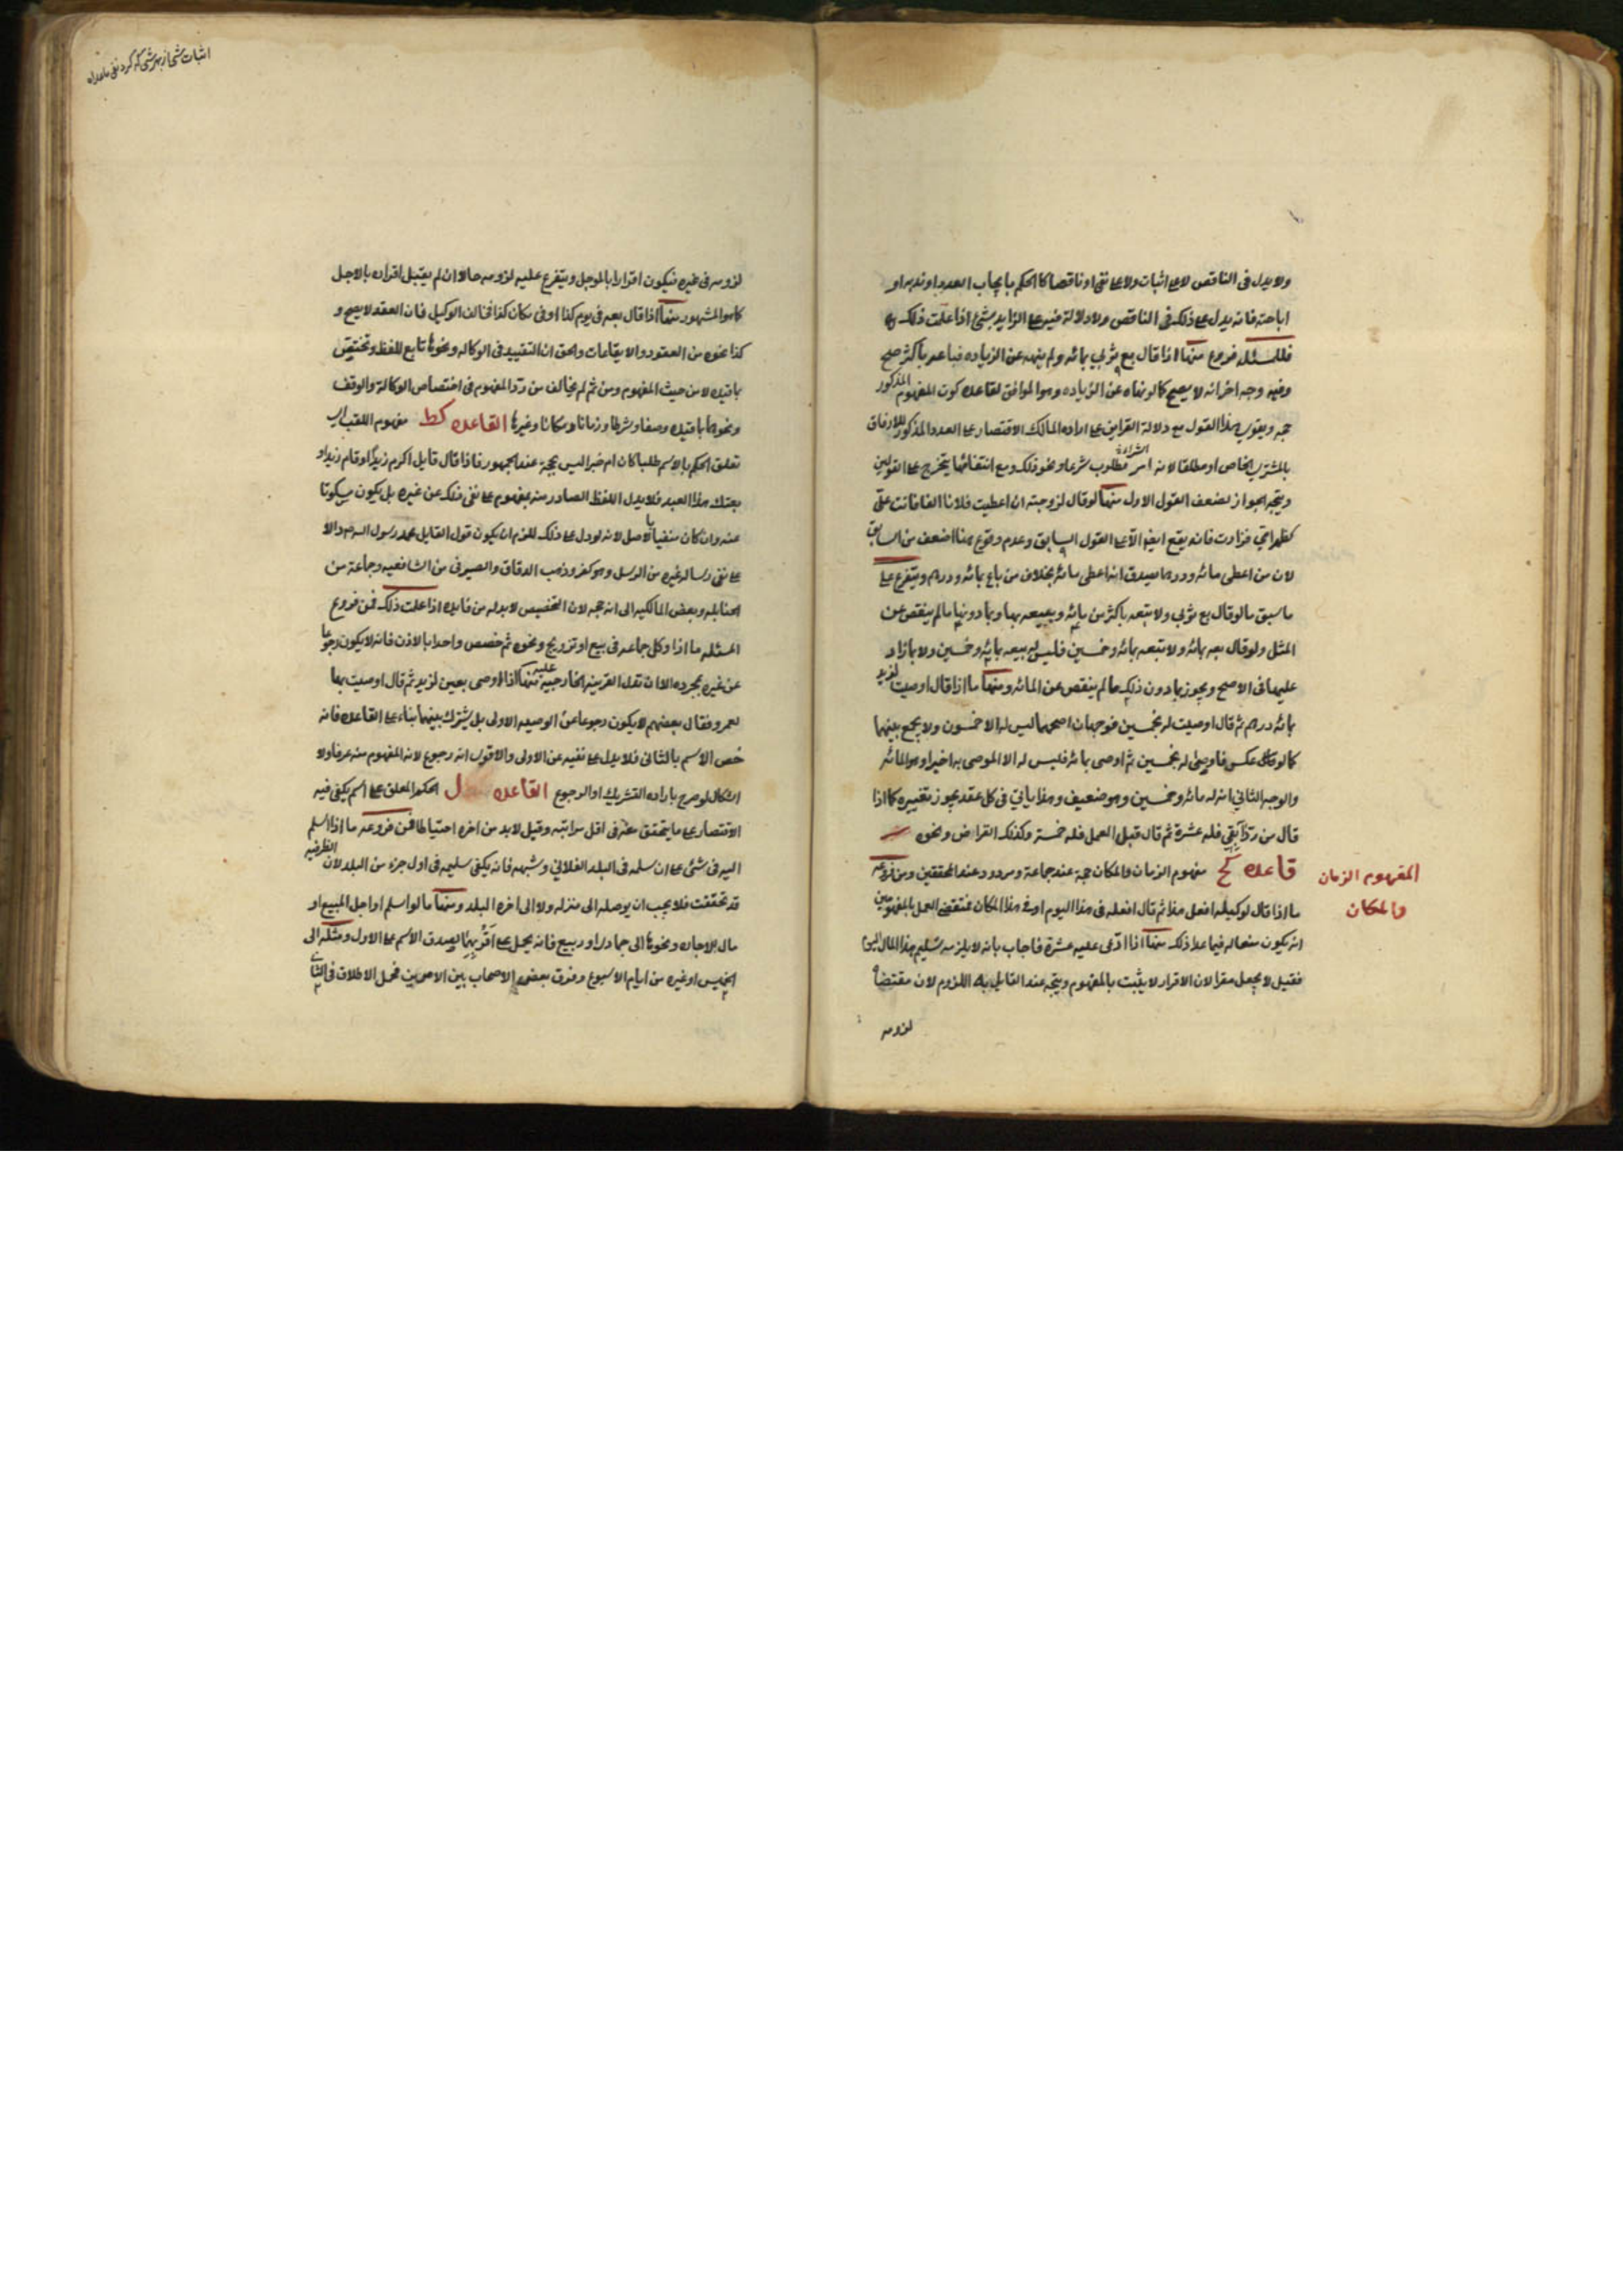 ولا يدل فى الناقص لا على اثبات ولا على نفى او ناقصا كالحكم بايجاب العدد او ندبه او
اباحته فانه يدل على ذلك فى الناقص ولا دلالة فيه على الزايد بشئ اذا علمت ذلك
فللمسئله فروع منها اذا قال بع ثوبى بمائه ولم ينهه عن الزياده فباعه باكثر صح
وفيه وجه اخر انه لا يصح كما لو نهاه عن الزياده وهو الموافق لقاعده كون المفهوم المذكور
حجه ويقوى هذا القول مع دلالة القراين على اراده المالك الاقتصار على العدد المذكور للارفاق
بالمشترى الخاص او مطلقا لانه امر مطلوب شرعا ونحو ذلك ومع انتفائها يتخرج على القولين
ويتجه الجواز لضعف القول الاول منها لو قال لزوجته ان اعطيت فلانا الفا فانت على
كظهر امى فزادت فانه يقع ايضا الا على القول السابق وعدم وقوع هنا اضعف من السابق
لان من اعطى مائه ودرهما يصدق انه اعطى مائه بخلاف من باع بمائه ودرهم ويتفرع على
ما سبق ما لو قال بع ثوبى ولا تبعه باكثر من مائه ويبيعه بها وبما دونها ما لم ينقص عن
المثل ولو قال بعه بمائه ولا تبعه بمائه وخمسين فليس له بيعه بمائه وخمسين ولا بما زاد
عليها فى الاصح ويجوز بما دون ذلك ما لم ينقص عن المائه ومنها ما اذا قال اوصيت لزيد
بمائه درهم ثم قال اوصيت له بخمسين فوجهان اصحهما ليس له الا خمسون ولا يجمع بينهما
كما لو عكس فاوصى له بخمسين ثم اوصى بمائه فليس له الا الموصى به اخيرا وهو المائه
والوجه الثانى ان له مائه وخمسين وهو ضعيف وهذا ياتى فى كل عقد يجوز تغييره كما اذا
قال من رد آبقى فله عشرة ثم قال قبل العمل فله خمسة وكذلك القراض ونحوه
قاعده كح مفهوم الزمان والمكان حجة عند جماعة ومردود عند المحققين ومن فروعه
ما اذا قال لوكيله افعل هذا ثم قال افعله فى هذا اليوم او فى هذا المكان فمقتضى العمل بالمفهومين
انه يكون منعا له فيما عدا ذلك منها اذا ادعى عليه عشرة فاجاب بانه لا يلزمه تسليم هذا المال اليوم
فقيل لا يجعل مقرا لان الاقرار لا يثبت بالمفهوم ويتجه عند القايل به اللزوم لان مقتضاه
لزومه
المفهوم الزمان
والمكان
لزومه فى غيره فيكون اقرارا بالموجل ويتفرع عليه لزومه حالا ان لم يقبل اقراره بالاجل
كما هو المشهور منها اذا قال بعه فى يوم كذا او فى مكان كذا فخالف الوكيل فان العقد لا يصح و
كذا نحوه من العقود والايقاعات والحق ان التقييد فى الوكاله ونحوها تابع للفظ وتختص
بما قيده لا من حيث المفهوم ومن ثم لم يخالف من رد المفهوم فى اختصاص الوكالة والوقف
ونحوهما بما قيده وصفا وشرطا وزمانا ومكانا وغيرها القاعده كط مفهوم اللقب اى
تعلق الحكم بالاسم طلبا كان ام خبرا ليس بحجة عند الجمهور فاذا قال قايل اكرم زيدا او قام زيد او
بعتك هذا العبد فلا يدل اللفظ الصادر منه بمفهوم على نفى ذلك عن غيره بل يكون مسكوتا
عنه وان كان منفيا بالاصل لانه لو دل على ذلك للزم ان يكون قول القايل محمد رسول الله دالا
على نفى رساله غيره من الرسل وهو كفر وذهب الدقاق والصيرفى من الشافعيه وجماعة من
الحنابله وبعض المالكيه الى انه حجه لان التخصيص لا بد له من فايده اذا علمت ذلك فمن فروع
المسئله ما اذا وكل جماعه فى بيع او تزويج ونحوه ثم خصص واحدا بالاذن فانه لا يكون رجوعا
عن غيره بمجرده الا ان تدل القرينه الخارجيه عليه منها اذا اوصى بعين لزيد ثم قال اوصيت بها
لعمرو فقال بعضهم لا يكون رجوعا عن الوصيه الاولى بل يشترك بينهما بناء على القاعده فانه
خص الاسم بالثانى فلا يدل على نفيه عن الاولى والاقوى انه رجوع لانه المفهوم منه عرفا ولا
اشكال لو صرح باراده التشريك او الرجوع القاعده ل الحكم المعلق على اسم يكفى فيه
الاقتصار على ما يتحقق معه فى اقل مراتبه وقيل لا بد من اخره احتياطا فمن فروعه ما اذا اسلم
اليه فى شئ على ان سلمه فى البلد الفلانى وشبهه فانه يكفى تسليمه فى اول جزء من البلد لان الظرفيه
قد تحققت فلا يجب ان يوصله الى منزله ولا الى اخره البلد ومنها ما لو اسلم او اجل المبيع او
مال الاجاره ونحوها الى جمادى او ربيع فانه يحل على اقربهما لصدق الاسم على الاول ومثله الى
الخميس او غيره من ايام الاسبوع وفرق بعض الاصحاب بين الامرين فحمل الاطلاق فى الثانى